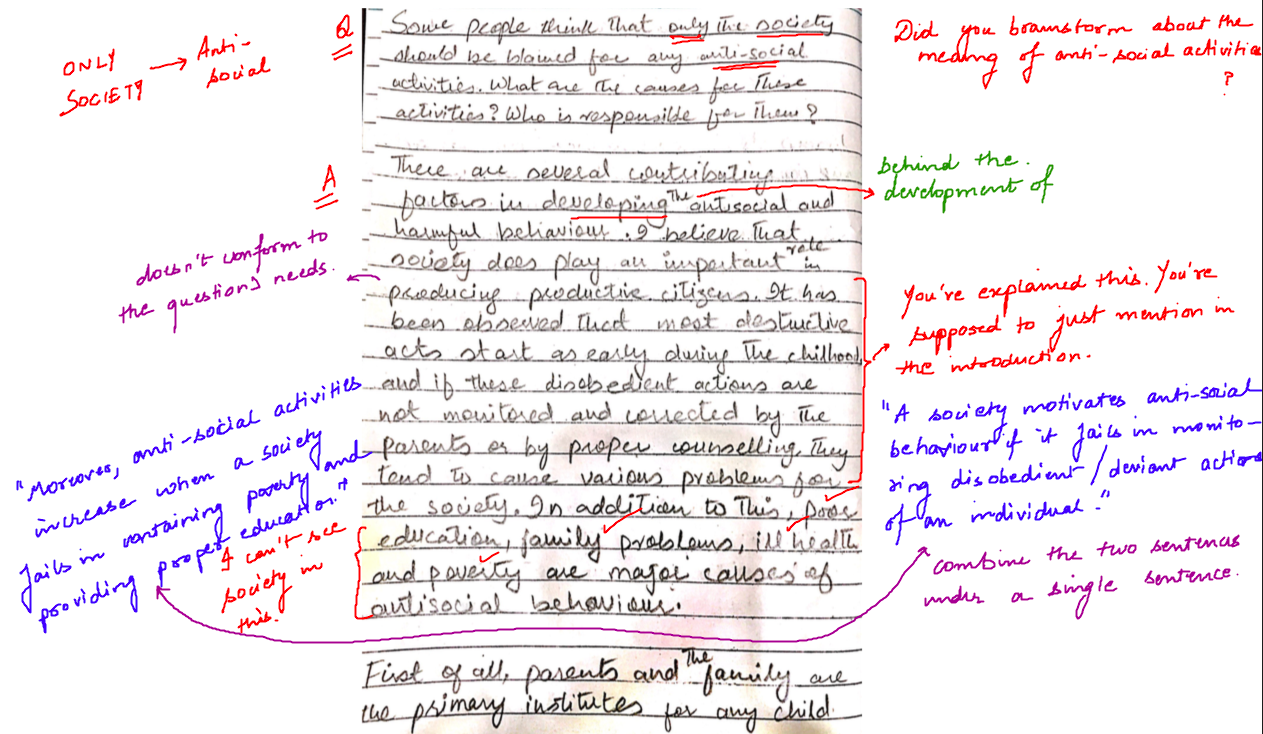 ONLY
SOCIETY → Anti-
social
Q
Some people think that only the society
should be blamed for any anti-social
activities. What are the causes for these
activities? Who is responsible for them?
Did you brainstorm about the
meaning of anti-social activities
?
A
There are several contributing
factors in developing the antisocial and
harmful behaviour. I believe that
society does play an important role in
producing productive citizens. It has
been observed that most destructive
acts start as early during the chilhood
and if these disobedient actions are
not monitored and corrected by the
parents or by proper counselling, they
tend to cause various problems for
the society. In addition to this, poor
education, family problems, ill health
and poverty are major causes of
antisocial behaviour.
First of all, parents and the family are
the primary institutes for any child
behind the
development of
doesn't conform to
the question's needs.
You've explained this. You're
supposed to just mention in
the introduction.
"A society motivates anti-social
behaviour if it fails in monito-
ring disobedient/deviant actions
of an individual."
combine the two sentences
under a single sentence.
"Moreover, anti-social activities
increase when a society
fails in containing poverty and
providing proper education."
I can't see
society in
this.